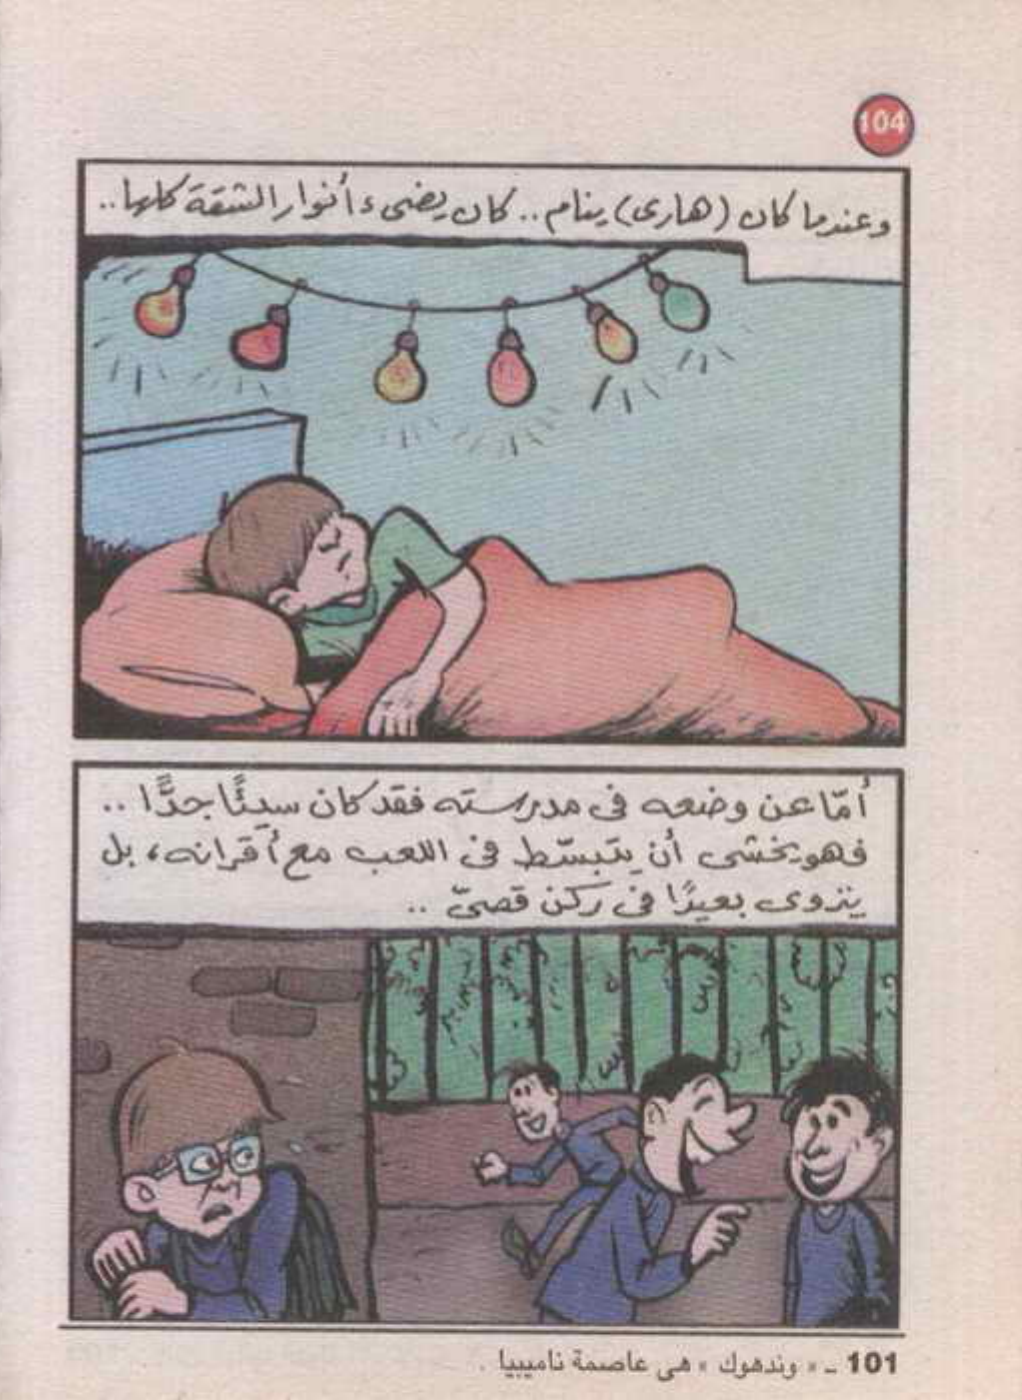 104
وعندما كان (هارى) ينام.. كان يضىء أنوار الشقة كلها..
أمّا عن وضعه فى مدرسته فقد كان سيئًا جدًّا ..
فهو يخشى أن يتبسّط فى اللعب مع أقرانه، بل
ينزوى بعيدًا فى ركن قصىّ ..
101 ــ « وندهوك » هى عاصمة ناميبيا .